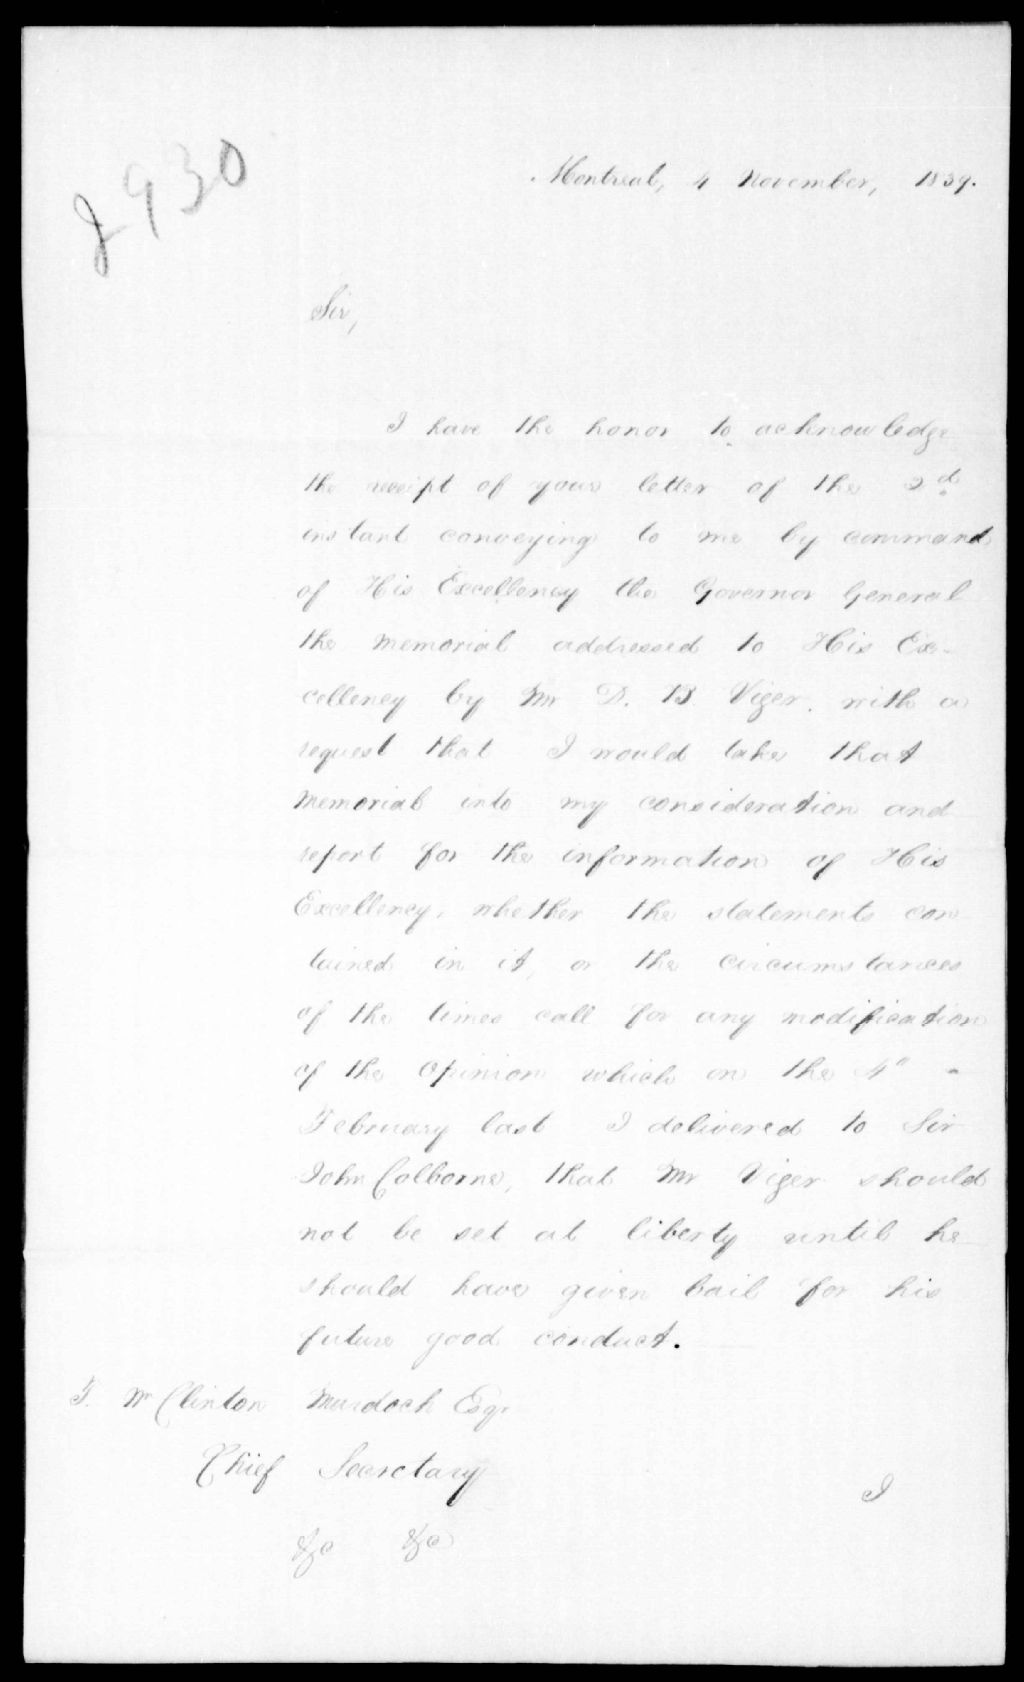 2930
Montreal, 4 November, 1839.
Sir,
I have the honor to acknowledge
the receipt of your letter of the 2d
instant conveying to me by command
of His Excellency the Governor General
the memorial addressed to His Ex-
cellency by Mr D. B Viger. with a
request that I would take that
memorial into my consideration and
report for the information of His
Excellency, whether the statements con
tained in it, or the circumstances
of the times call for any modification
of the opinion which on the 4th
February last I delivered to Sir
John Colborne, that Mr Viger should
not be set at liberty until he
should have given bail for his
future good conduct.
T. Wm Clinton Murdoch Esqr
Chief Secretary
&c &c
I